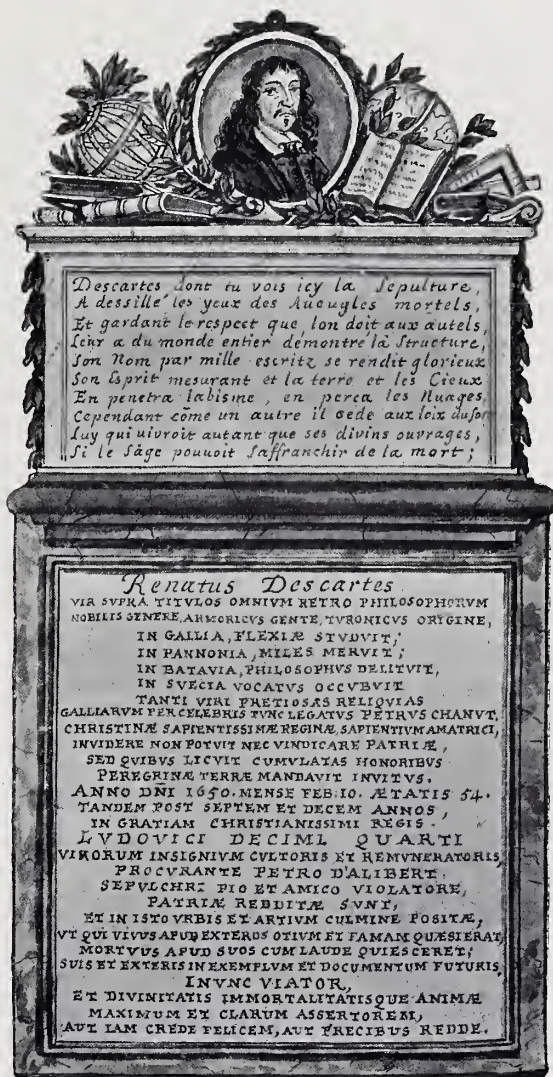 Descartes dont tu vois icy la Sepulture,
A dessillé les yeux des Aueugles mortels,
Et gardant le respect que lon doit aux autels,
Leur a du monde entier démontré la Structure,
Son Nom par mille escritz se rendit glorieux
Son Esprit mesurant et la terre et les Cieux
En penetra labisme, en perca les Nuages,
Cependant cõme un autre il cede aux loix du sor
Luy qui uivroit autant que ses divins ouvrages,
Si le Sage pouuoit Saffranchir de la mort;
Renatus Descartes
VIR SVPRA TITVLOS OMNIVM RETRO PHILOSOPHORVM
NOBILIS GENERE, ARMORICVS GENTE, TVRONICVS ORIGINE,
IN GALLIA, FLEXIÆ STVDVIT;
IN PANNONIA, MILES MERVIT;
IN BATAVIA, PHILOSOPHVS DELITVIT,
IN SVECIA VOCATVS OCCVBVIT
TANTI VIRI PRETIOSAS RELIQVIAS
GALLIARVM PERCELEBRIS TVNC LEGATVS PETRVS CHANVT,
CHRISTINÆ SAPIENTISSIMÆ REGINÆ, SAPIENTIVM AMATRICI,
INVIDERE NON POTVIT NEC VINDICARE PATRIÆ,
SED QVIBVS LICVIT CVMVLATAS HONORIBVS
PEREGRINÆ TERRÆ MANDAVIT INVITVS.
ANNO DÑI 1650. MENSE FEB. 10. ÆTATIS 54.
TANDEM POST SEPTEM ET DECEM ANNOS,
IN GRATIAM CHRISTIANISSIMI REGIS.
LVDOVICI DECIMI QVARTI
VIRORUM INSIGNIVM CVLTORIS ET REMVNERATORIS,
PROCVRANTE PETRO D'ALIBERT,
SEPVLCHRI PIO ET AMICO VIOLATORE,
PATRIÆ REDDITÆ SVNT,
ET IN ISTO VRBIS ET ARTIVM CVLMINE POSITÆ,
VT QVI VIVUS APUD EXTEROS OTIVM ET FAMAM QVÆSIERAT,
MORTVVS APVD SVOS CVM LAVDE QVIESCERET;
SVIS ET EXTERIS IN EXEMPLVM ET DOCVMENTVM FVTVRIS,
I NVNC VIATOR,
ET DIVINITATIS IMMORTALITATISQVE ANIMÆ
MAXIMVM ET CLARVM ASSERTOREM,
AVT IAM CREDE FELICEM, AVT PRECIBVS REDDE.